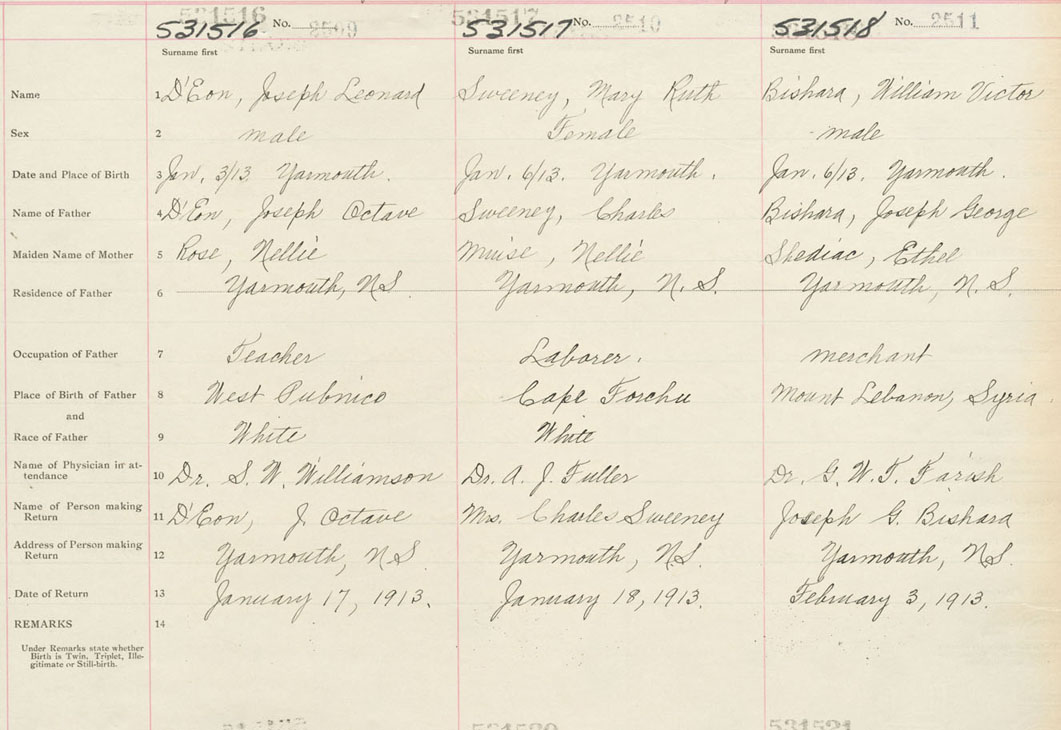 531516 No. 2509 531517 No. 2510 531518 No. 2511
Surname first Surname first Surname first
Name 1 D'Eon, Joseph Leonard Sweeney, Mary Ruth Bishara, William Victor
Sex 2 male Female male
Date and Place of Birth 3 Jan. 3/13 Yarmouth. Jan. 6/13. Yarmouth. Jan. 6/13. Yarmouth.
Name of Father 4 D'Eon, Joseph Octave Sweeney, Charles Bishara, Joseph George
Maiden Name of Mother 5 Rose, Nellie Muise, Nellie Shediac, Ethel
Residence of Father 6 Yarmouth, N.S. Yarmouth, N.S. Yarmouth, N.S.
Occupation of Father 7 Teacher Laborer. merchant
Place of Birth of Father 8 West Pubnico Cape Forchu Mount Lebanon, Syria.
and
Race of Father 9 White White
Name of Physician in at-
tendance 10 Dr. S. W. Williamson Dr. A. J. Fuller Dr. G. W. T. Farish
Name of Person making
Return 11 D'Eon, J. Octave Mrs. Charles Sweeney Joseph G. Bishara
Address of Person making
Return 12 Yarmouth, N.S. Yarmouth, N.S. Yarmouth, N.S.
Date of Return 13 January 17, 1913. January 18, 1913. February 3, 1913.
REMARKS 14
Under Remarks state whether
Birth is Twin, Triplet, Ille-
gitimate or Still-birth.
531521